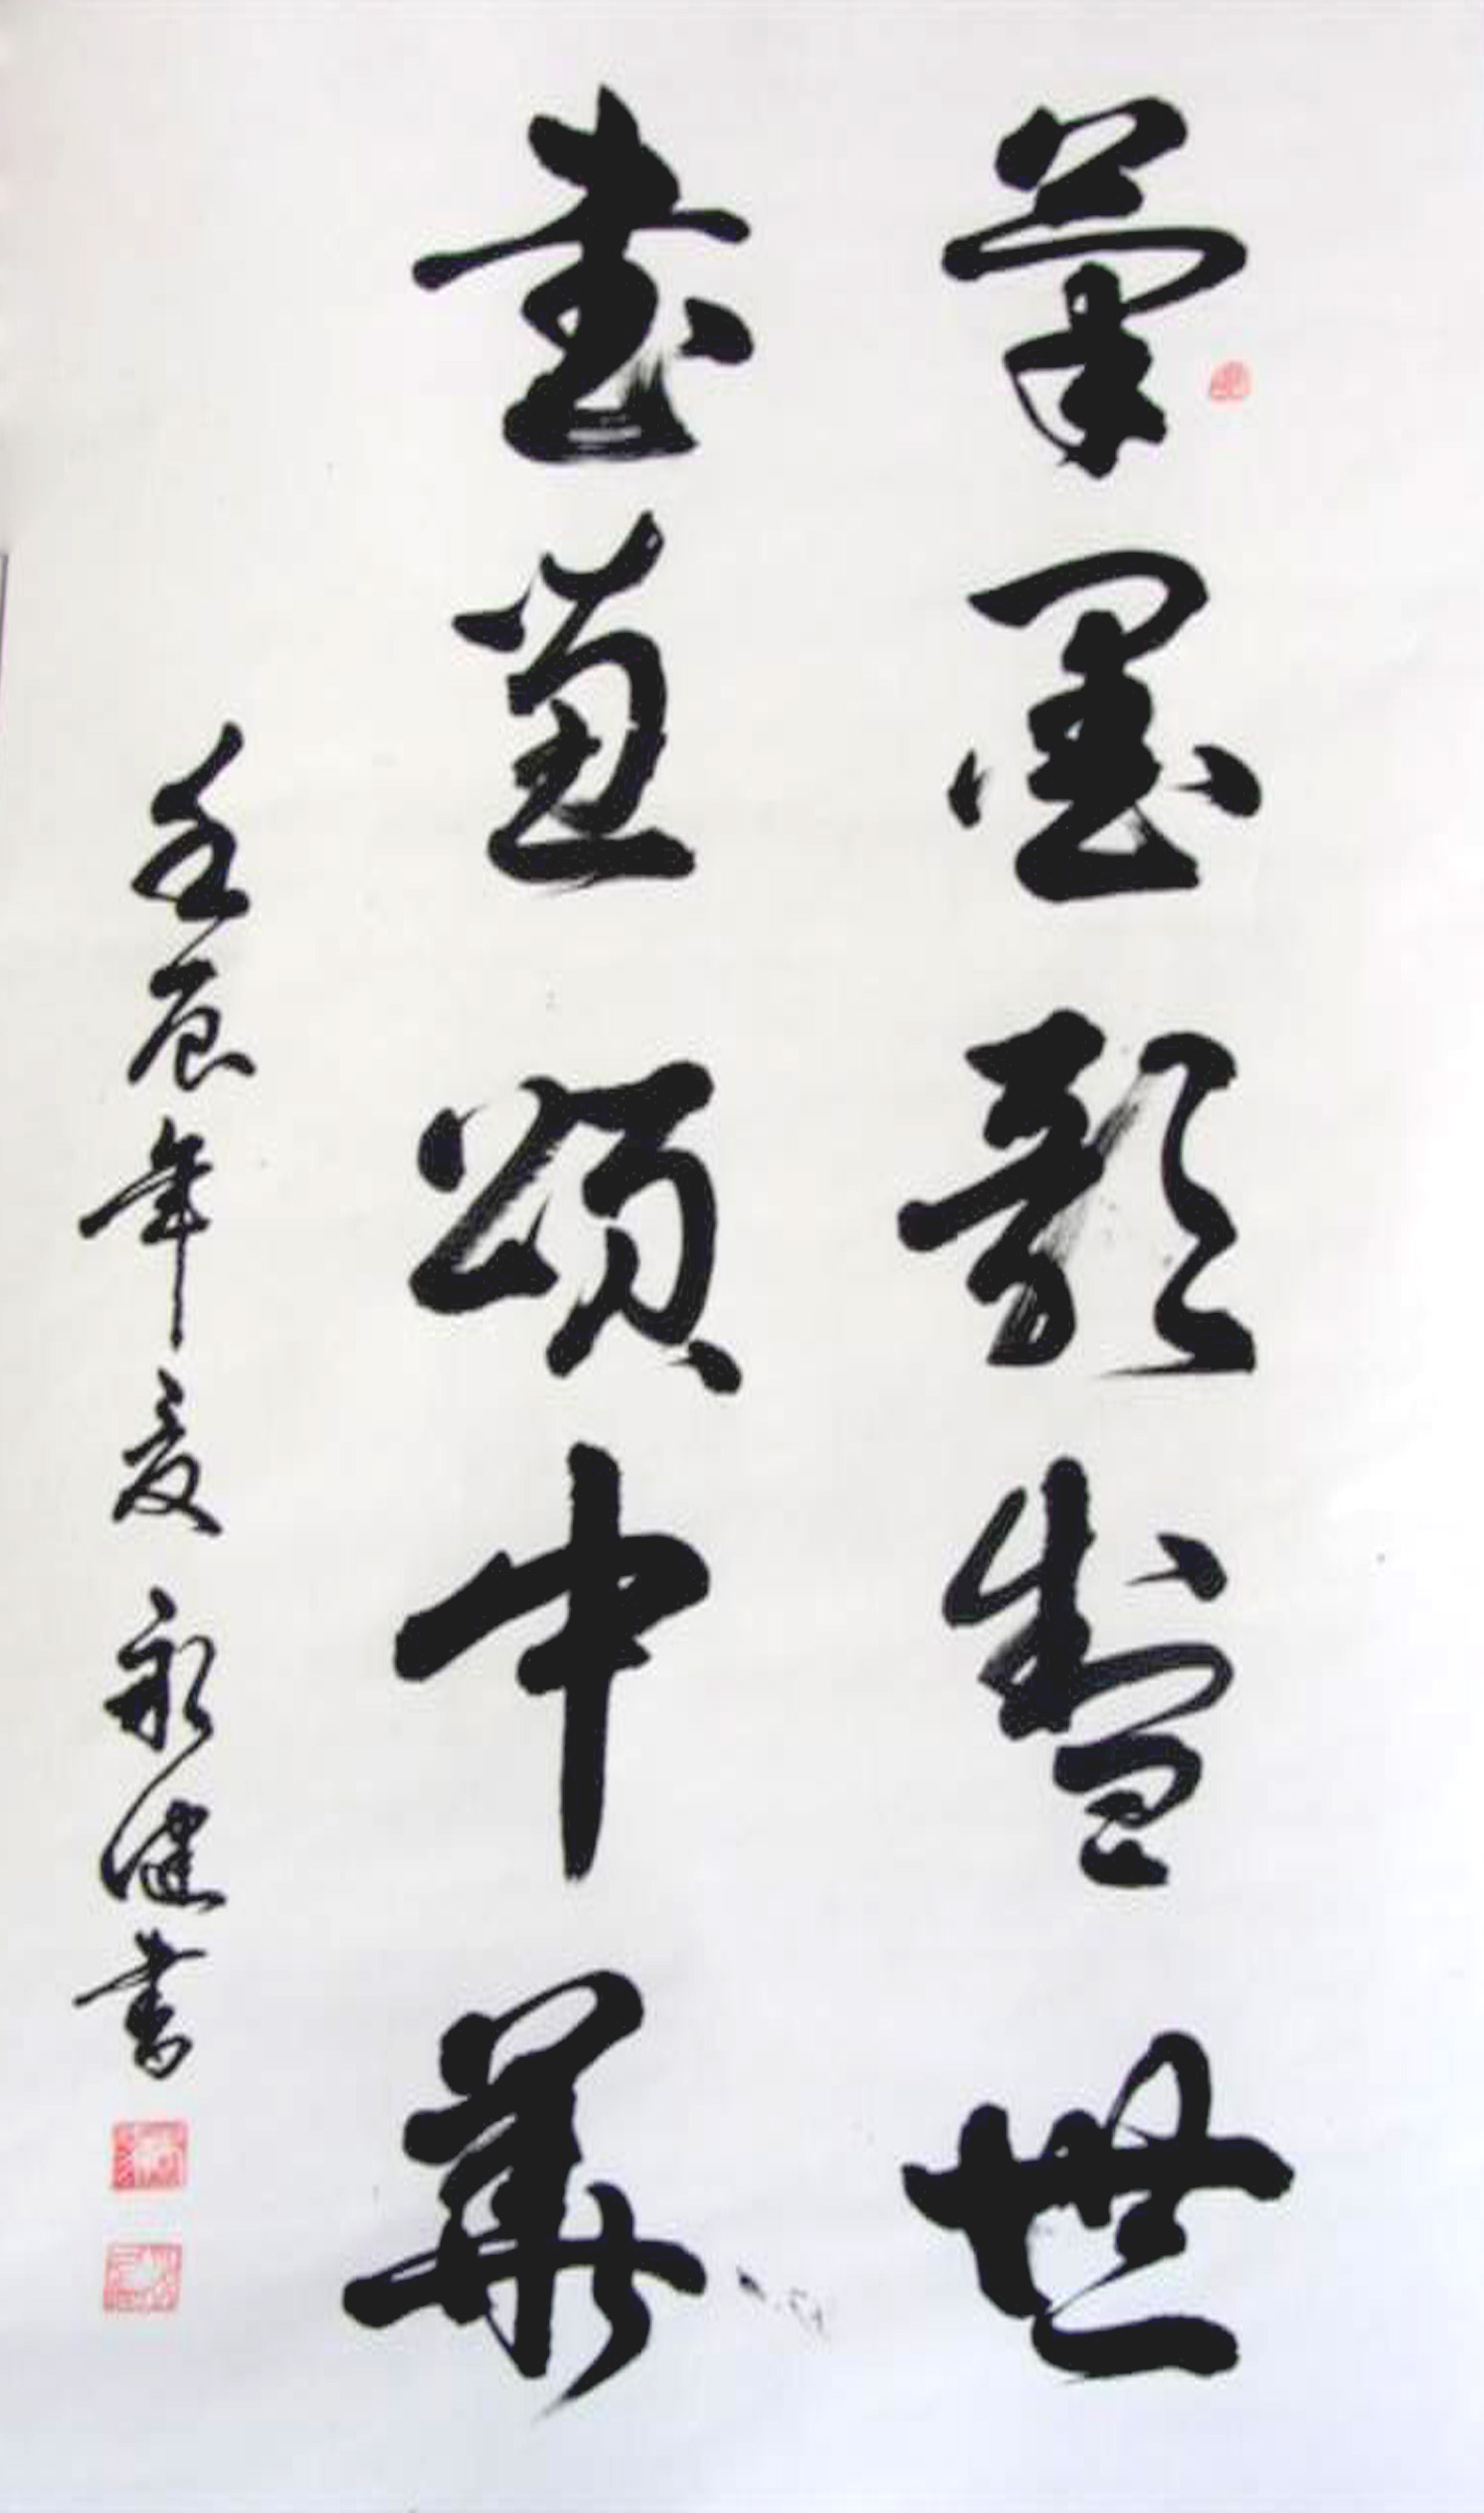 筆墨歌盛世
書畫頌中華
壬辰年夏永健書